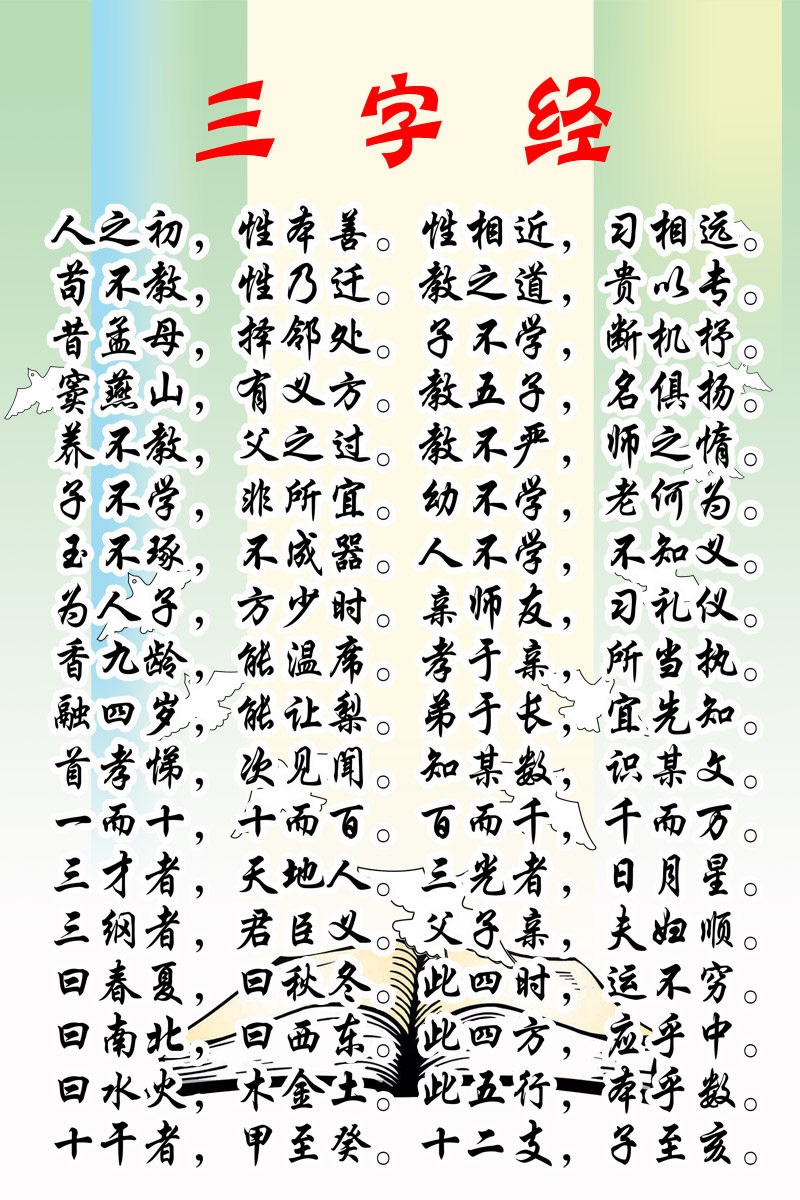 三字经
人之初，性本善。性相近，习相远。
苟不教，性乃迁。教之道，贵以专。
昔孟母，择邻处。子不学，断机杼。
窦燕山，有义方。教五子，名俱扬。
养不教，父之过。教不严，师之惰。
子不学，非所宜。幼不学，老何为。
玉不琢，不成器。人不学，不知义。
为人子，方少时。亲师友，习礼仪。
香九龄，能温席。孝于亲，所当执。
融四岁，能让梨。弟于长，宜先知。
首孝悌，次见闻。知某数，识某文。
一而十，十而百。百而千，千而万。
三才者，天地人。三光者，日月星。
三纲者，君臣义。父子亲，夫妇顺。
曰春夏，曰秋冬。此四时，运不穷。
曰南北，曰西东。此四方，应乎中。
曰水火，木金土。此五行，本乎数。
十干者，甲至癸。十二支，子至亥。